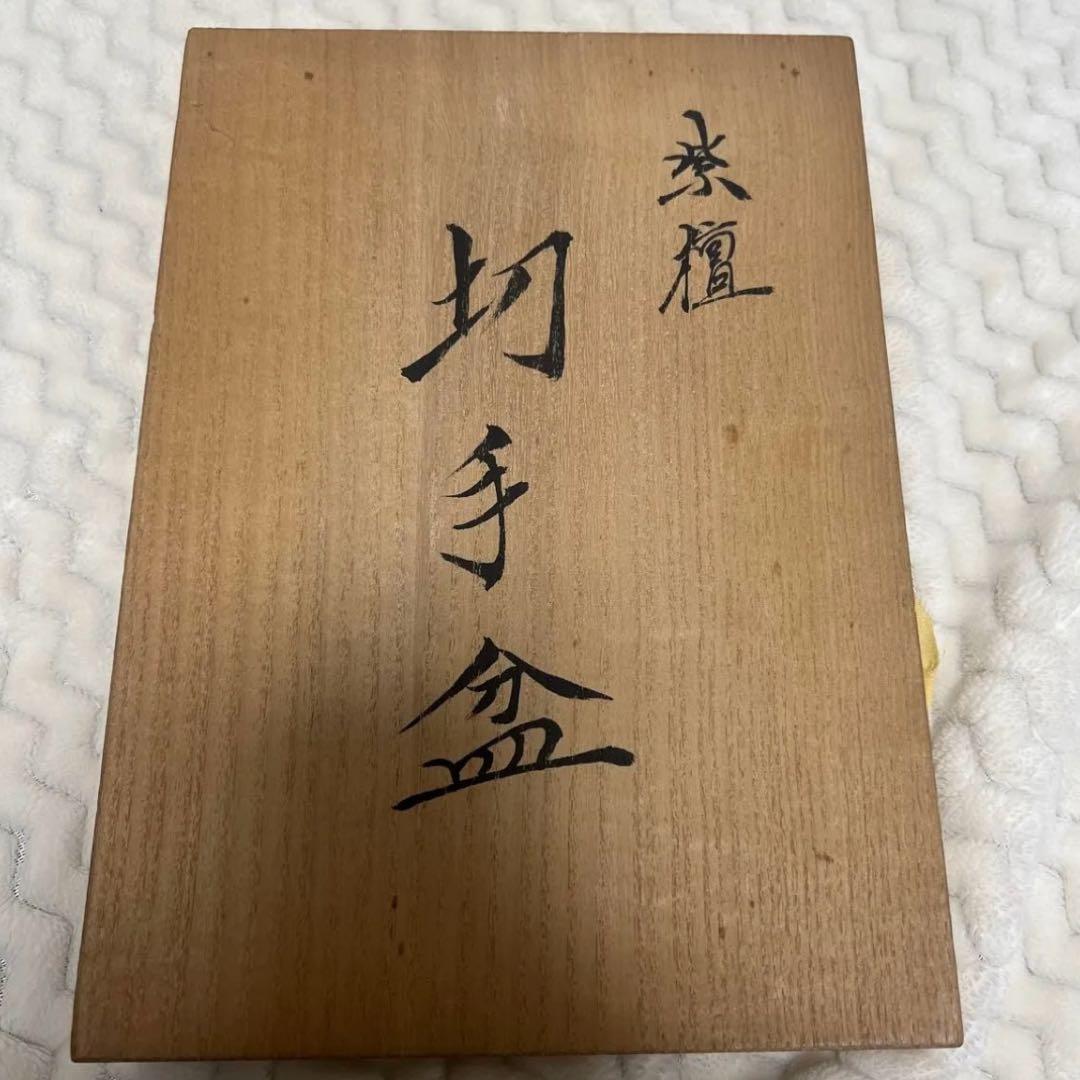 紫檀
切手盆